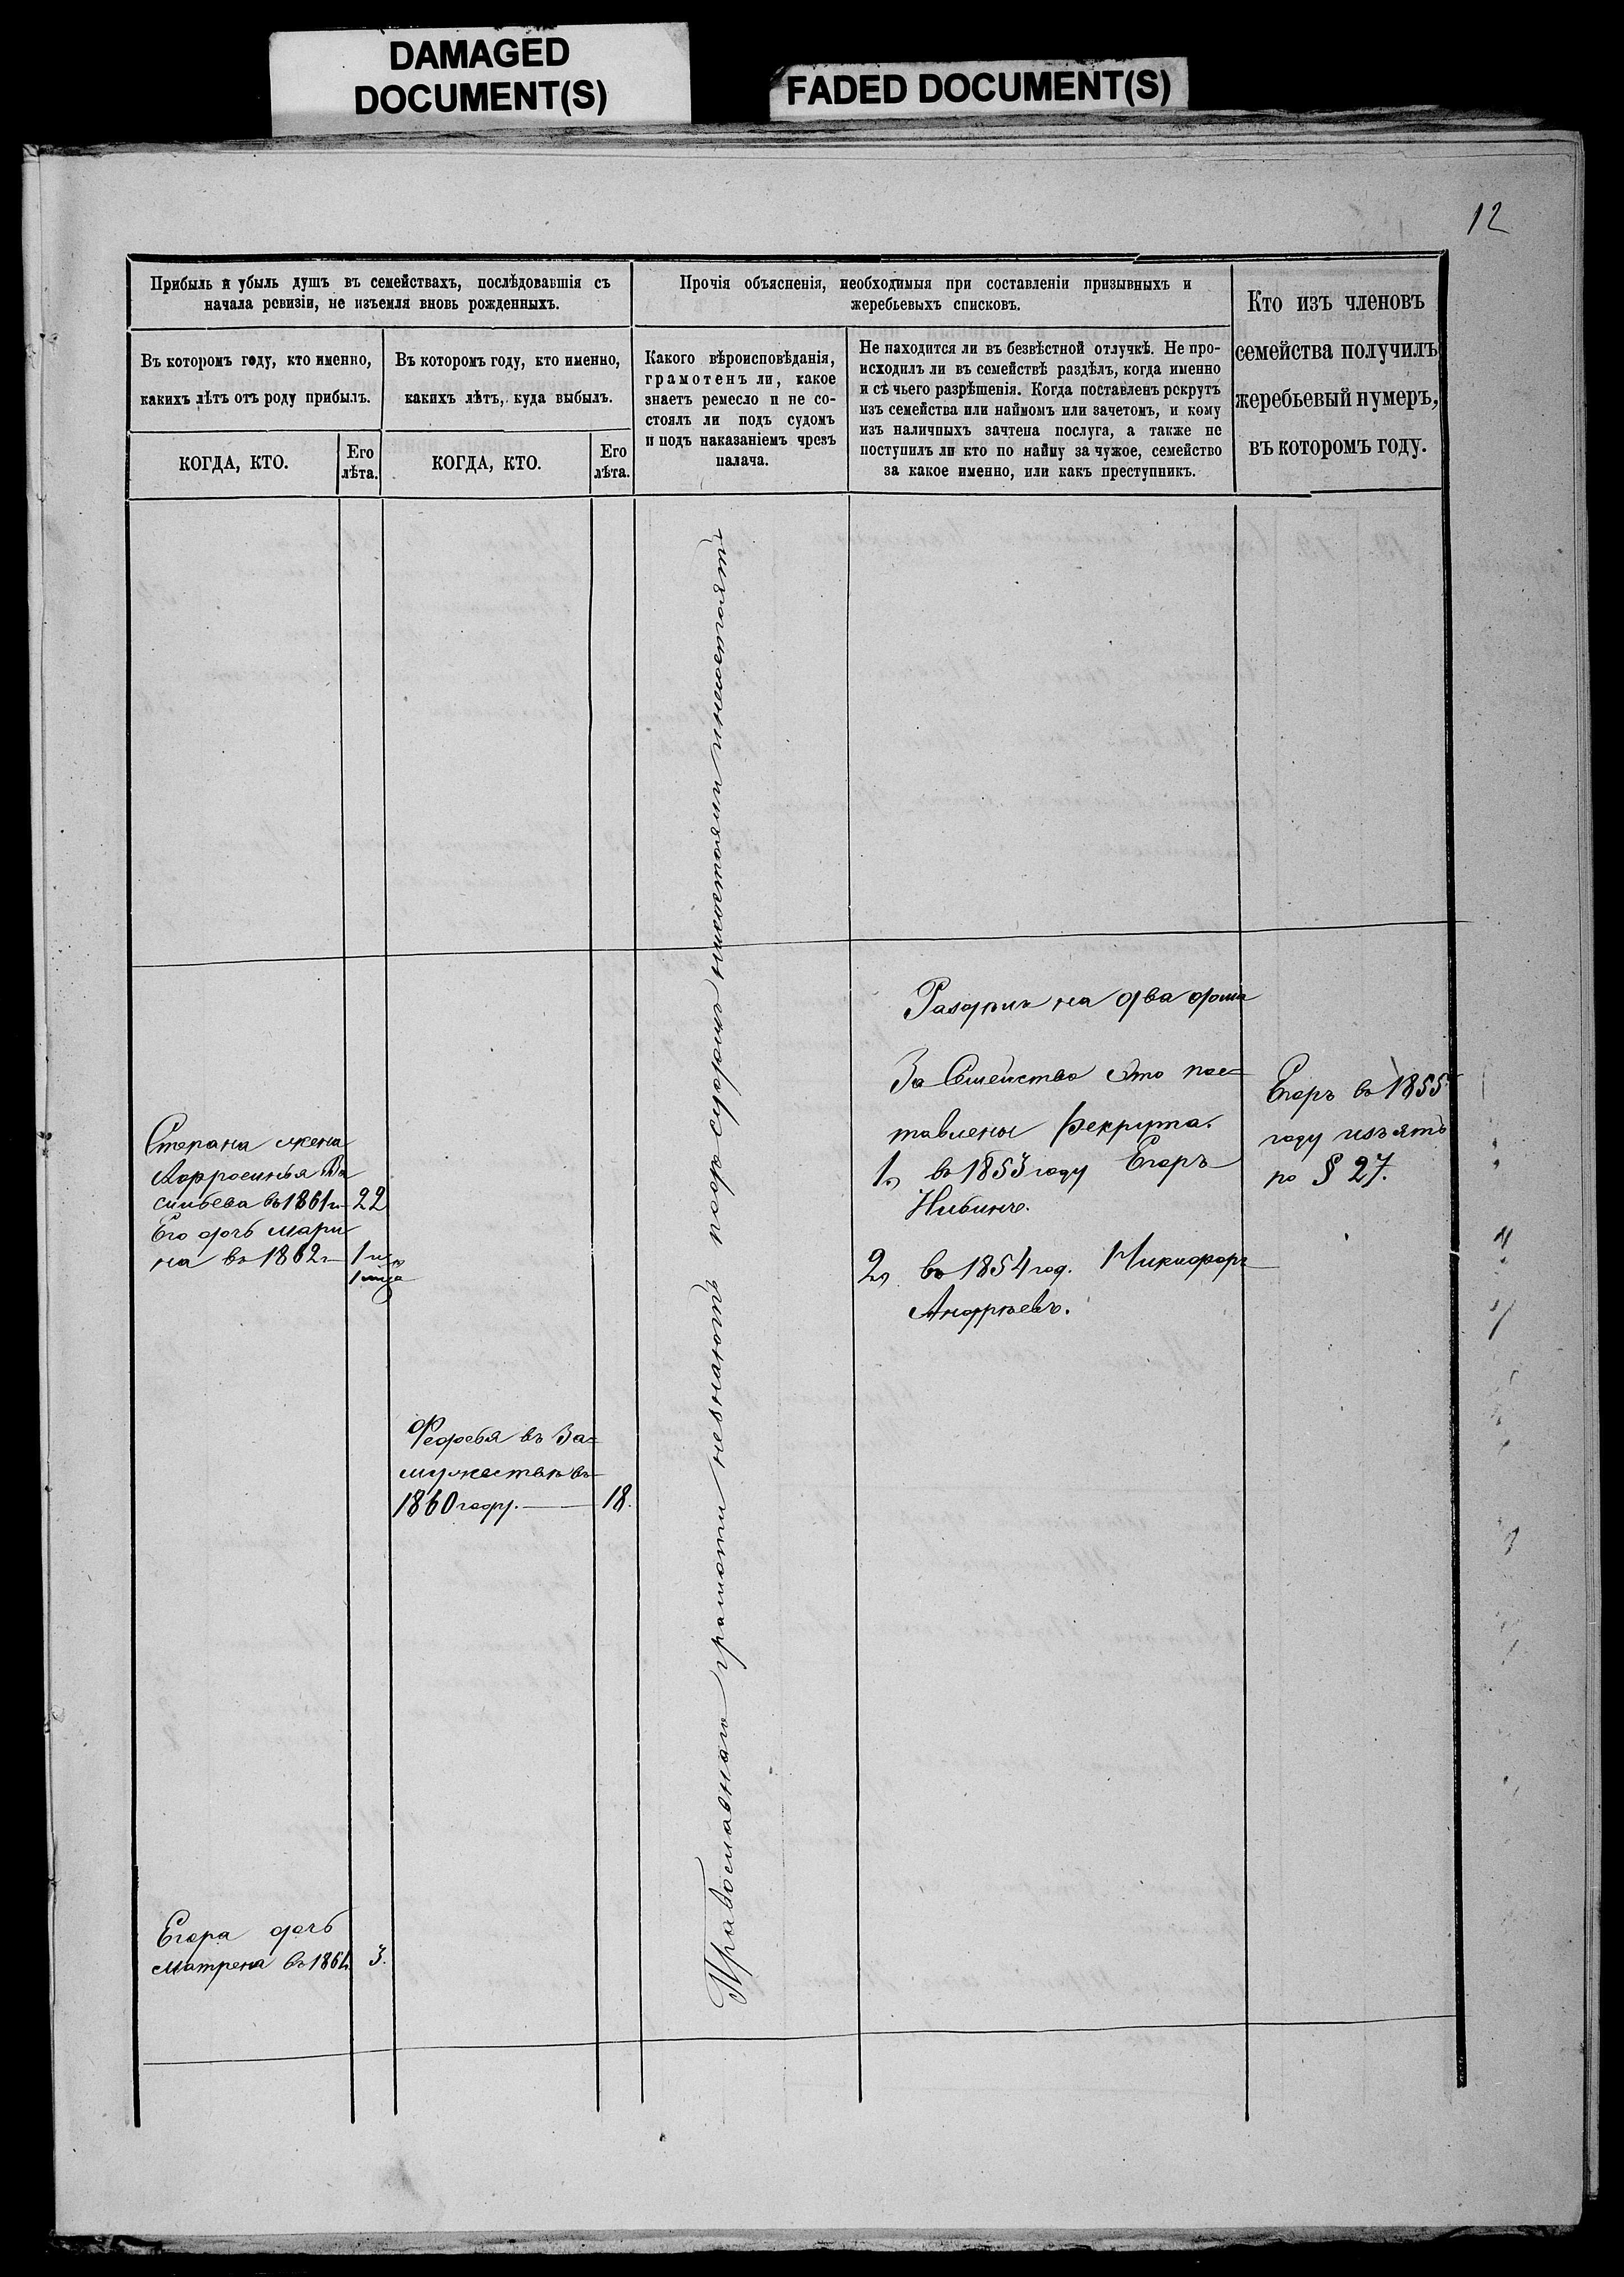 DAMAGED
DOCUMENT(S)
FADED DOCUMENT(S)
12
Прибыль и убыль душъ въ семействахъ, послѣдовавшія съ
начала ревизіи, не изъемля вновь рожденныхъ.
Въ которомъ году, кто именно,
какихъ лѣтъ отъ роду прибылъ.
КОГДА, КТО.
Его
лѣта.
Въ которомъ году, кто именно,
какихъ лѣтъ, куда выбылъ.
КОГДА, КТО.
Его
лѣта.
Прочія объясненія, необходимыя при составленіи призывныхъ и
жеребьевыхъ списковъ.
Какого вѣроисповѣданія,
грамотенъ ли, какое
знаетъ ремесло и не со-
стоялъ ли подъ судомъ
и подъ наказаніемъ чрезъ
палача.
Не находится ли въ безвѣстной отлучкѣ. Не про-
исходилъ ли въ семействѣ раздѣлъ, когда именно
и съ чьего разрѣшенія. Когда поставленъ рекрутъ
изъ семейства или наймомъ или зачетомъ, и кому
изъ наличныхъ зачтена послуга, а также не
поступилъ ли кто по найму за чужое, семейство
за какое именно, или какъ преступникъ.
Кто изъ членовъ
семейства получилъ
жеребьевый нумеръ,
въ которомъ году.
Степана жена
Афросинья Ва
сильева въ 1861 г. 22
Его дочь мари
на въ 1862 г. 1
1
Федосья въ За=
мужествѣ въ
1860 году. 18.
Егора дочь
Матрена въ 1864 3.
Православнаго грамоты незнаютъ подъ судомъ несостояли и несостоятъ
Раздѣлъ на два дома
За Семейство Это пос=
тавлены Рекрута.
1) въ 1853 году Егоръ
2) въ 1854 год. Никифоръ
Андрѣевъ.
Егоръ въ 1855
году изъятъ
по § 27.